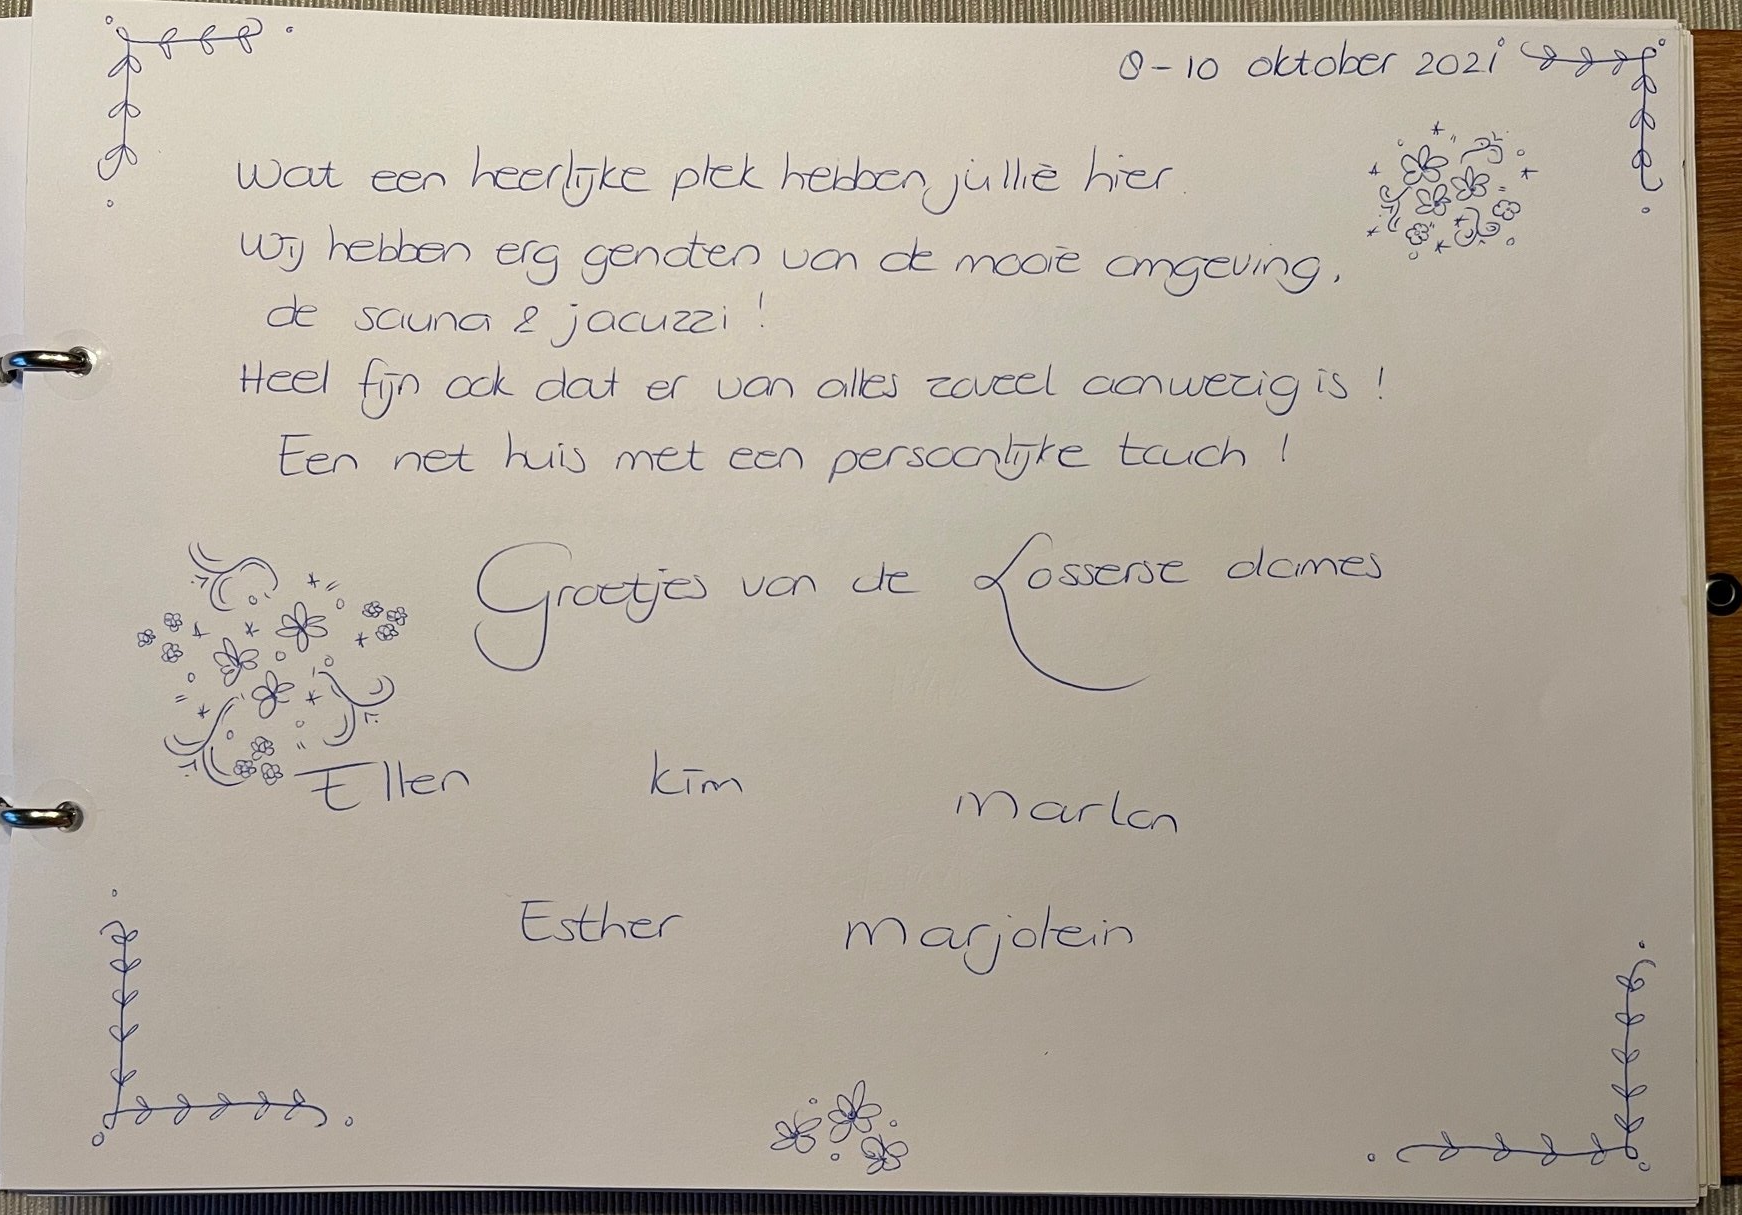 8-10 oktober 2021
Wat een heerlijke plek hebben jullie hier.
Wij hebben erg genoten van de mooie omgeving,
de sauna & jacuzzi!
Heel fijn ook dat er van alles zoveel aanwezig is!
Een net huis met een persoonlijke touch!
Groetjes van de Losserse dames
Ellen Kim Marlon
Esther Marjolein